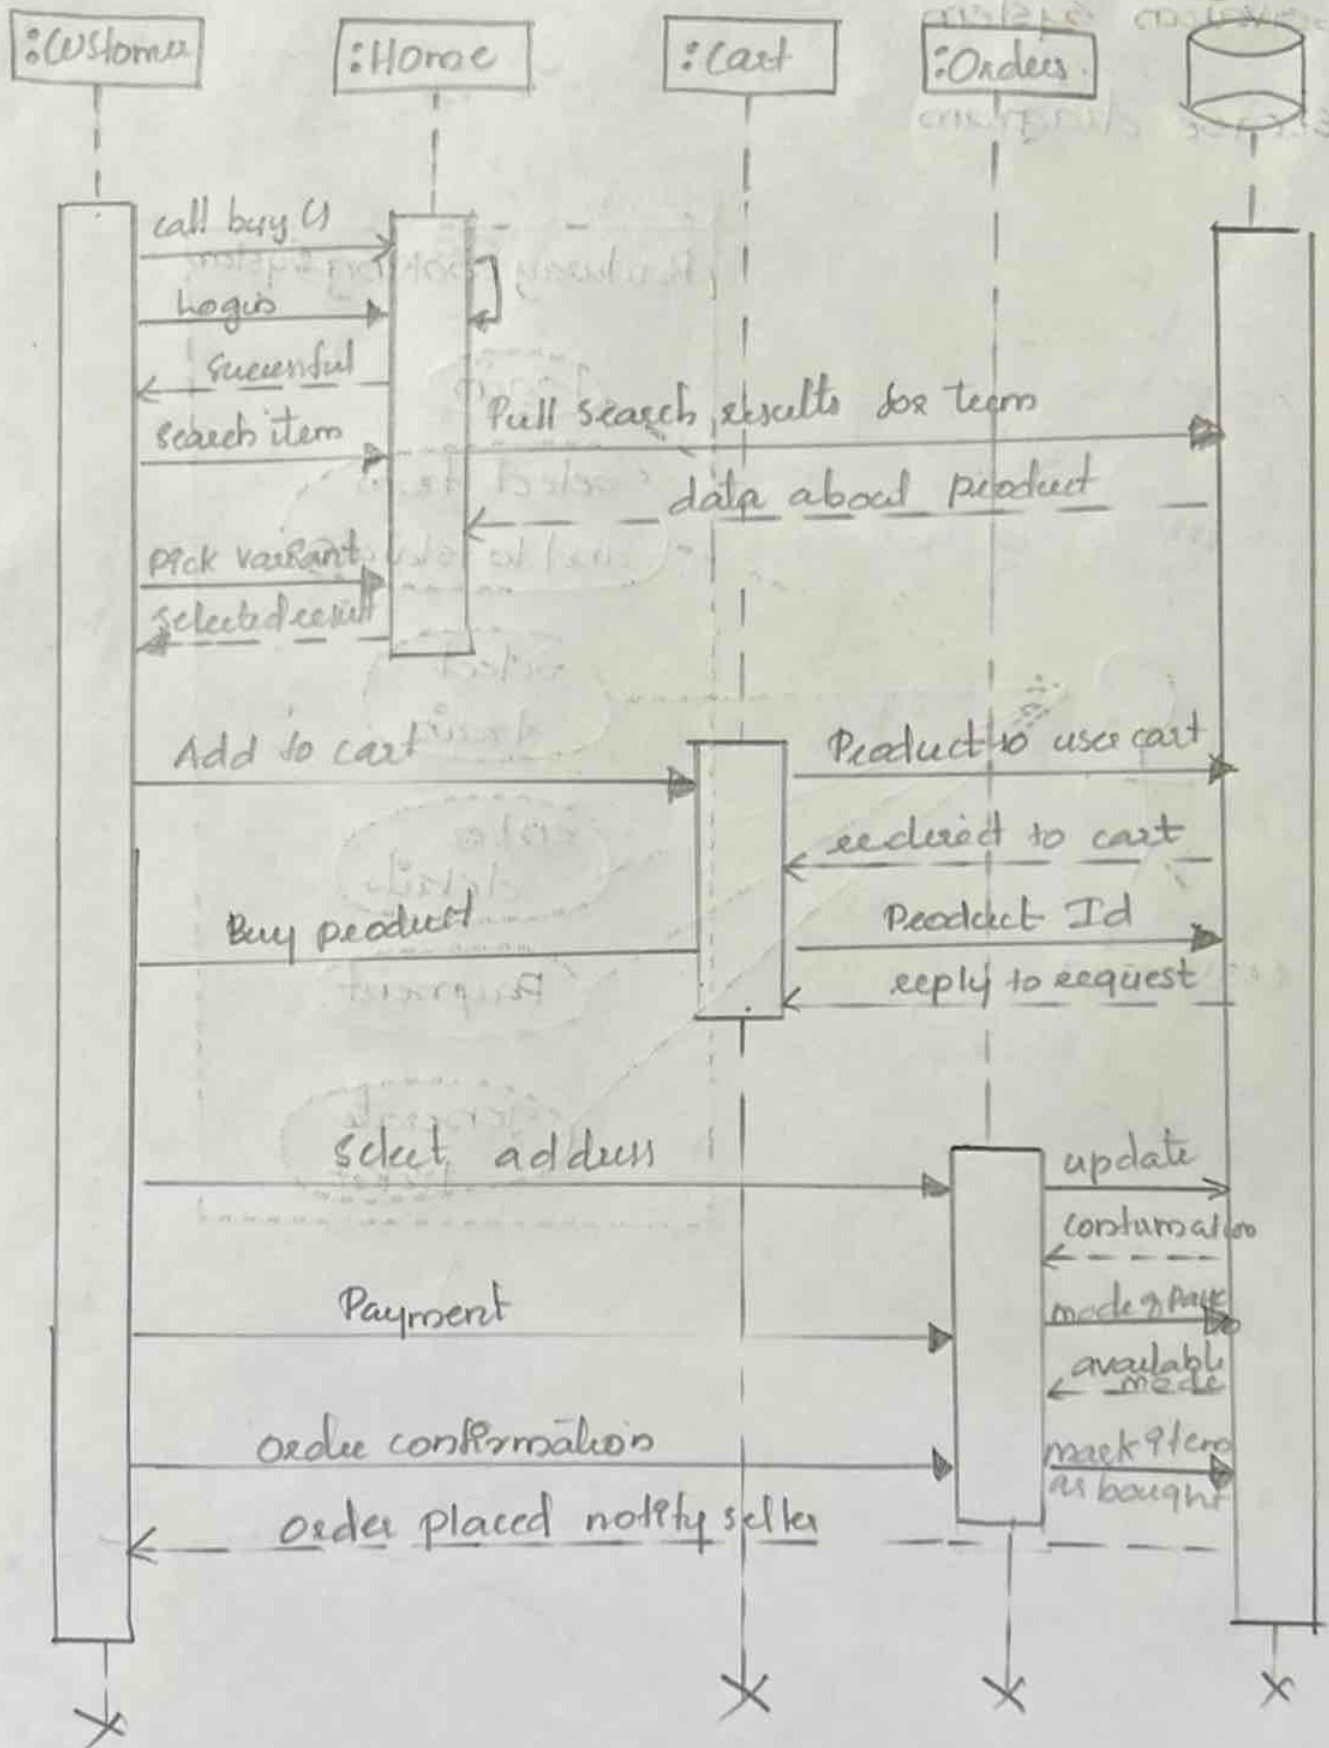 :Customer
:Home
:Cart
:Orders.
call buy ()
Login
Successful
Search item
Pull search results for term
data about product
Pick variant
Selected result
Add to cart
Product to user cart
to cart
Buy product
Product Id
reply to request
Select address
update
Payment
mode of
available
mode
Order confirmation
mark item
as bought
Order placed notify seller